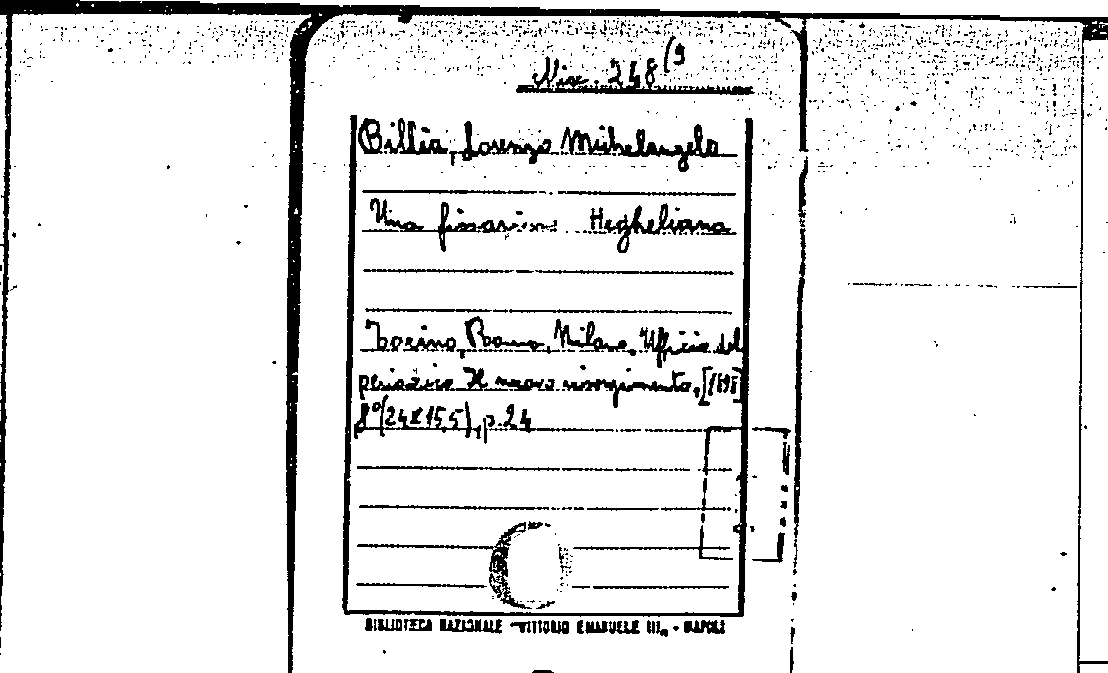 Misc. 248(9
Billia, Lorenzo Michelangelo
Una fissazione Hegheliana
Torino, Roma, Milano, Ufficio del
periodico Il nuovo risorgimento,
8°(24x15,5), p. 24
BIBLIOTECA NAZIONALE "VITTORIO EMANUELE III" - NAPOLI